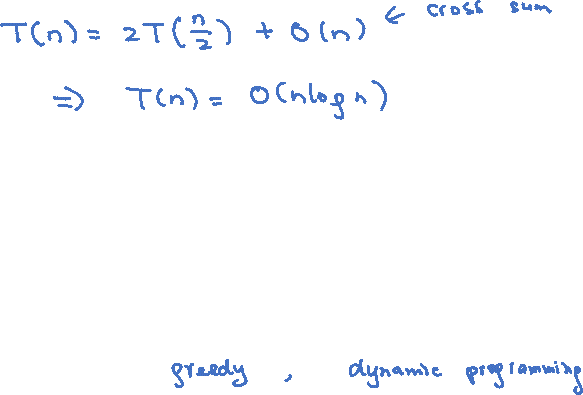 T(n) = 2T(n/2) + O(n) ← cross sum
⇒ T(n) = O(nlogn)
greedy, dynamic programming